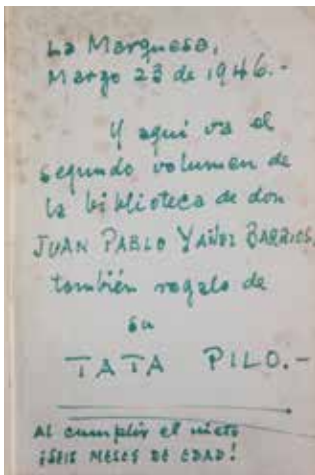 La Marquesa,
Marzo 23 de 1946.-
Y aquí va el
segundo volumen de
la biblioteca de don
JUAN PABLO YAÑEZ BARRIOS,
también regalo de
su
TATA PILO.-
Al cumplir el nieto
¡SEIS MESES DE EDAD!